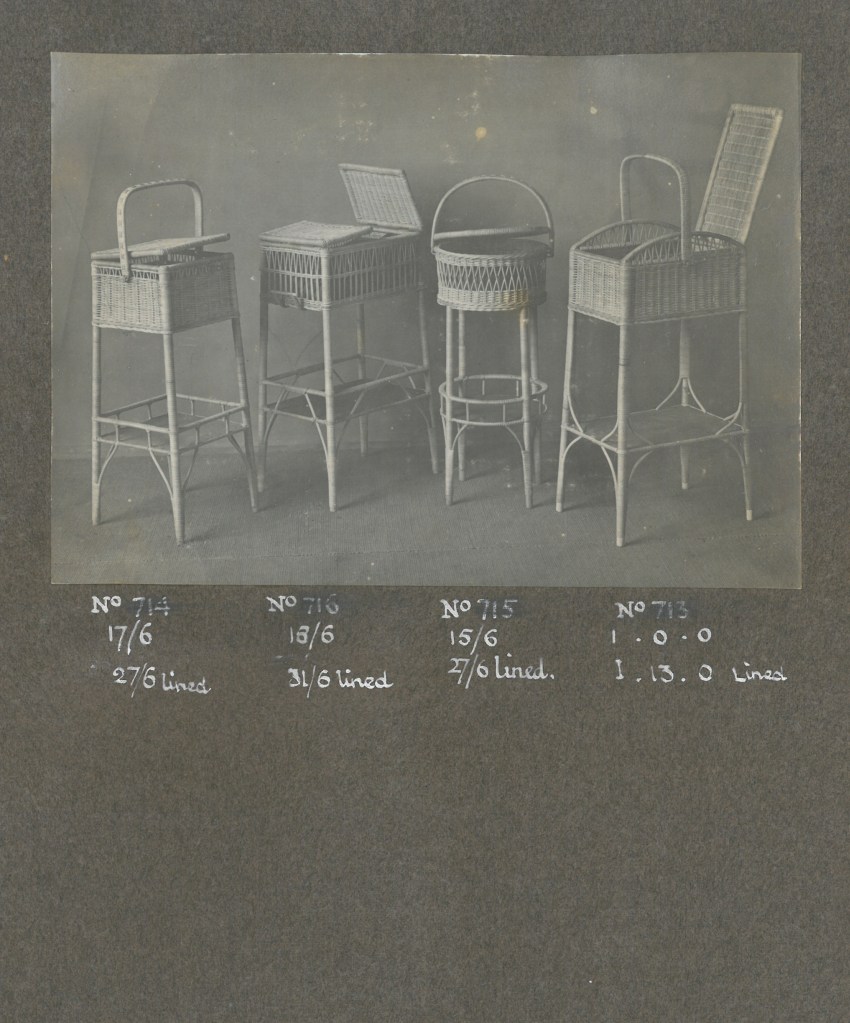 No 714 No 716 No 715 No 713
17/6 18/6 15/6 1 . 0 . 0
27/6 lined 31/6 lined 27/6 lined. 1 . 13 . 0 Lined